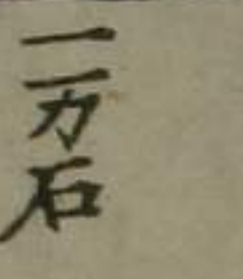 一万石